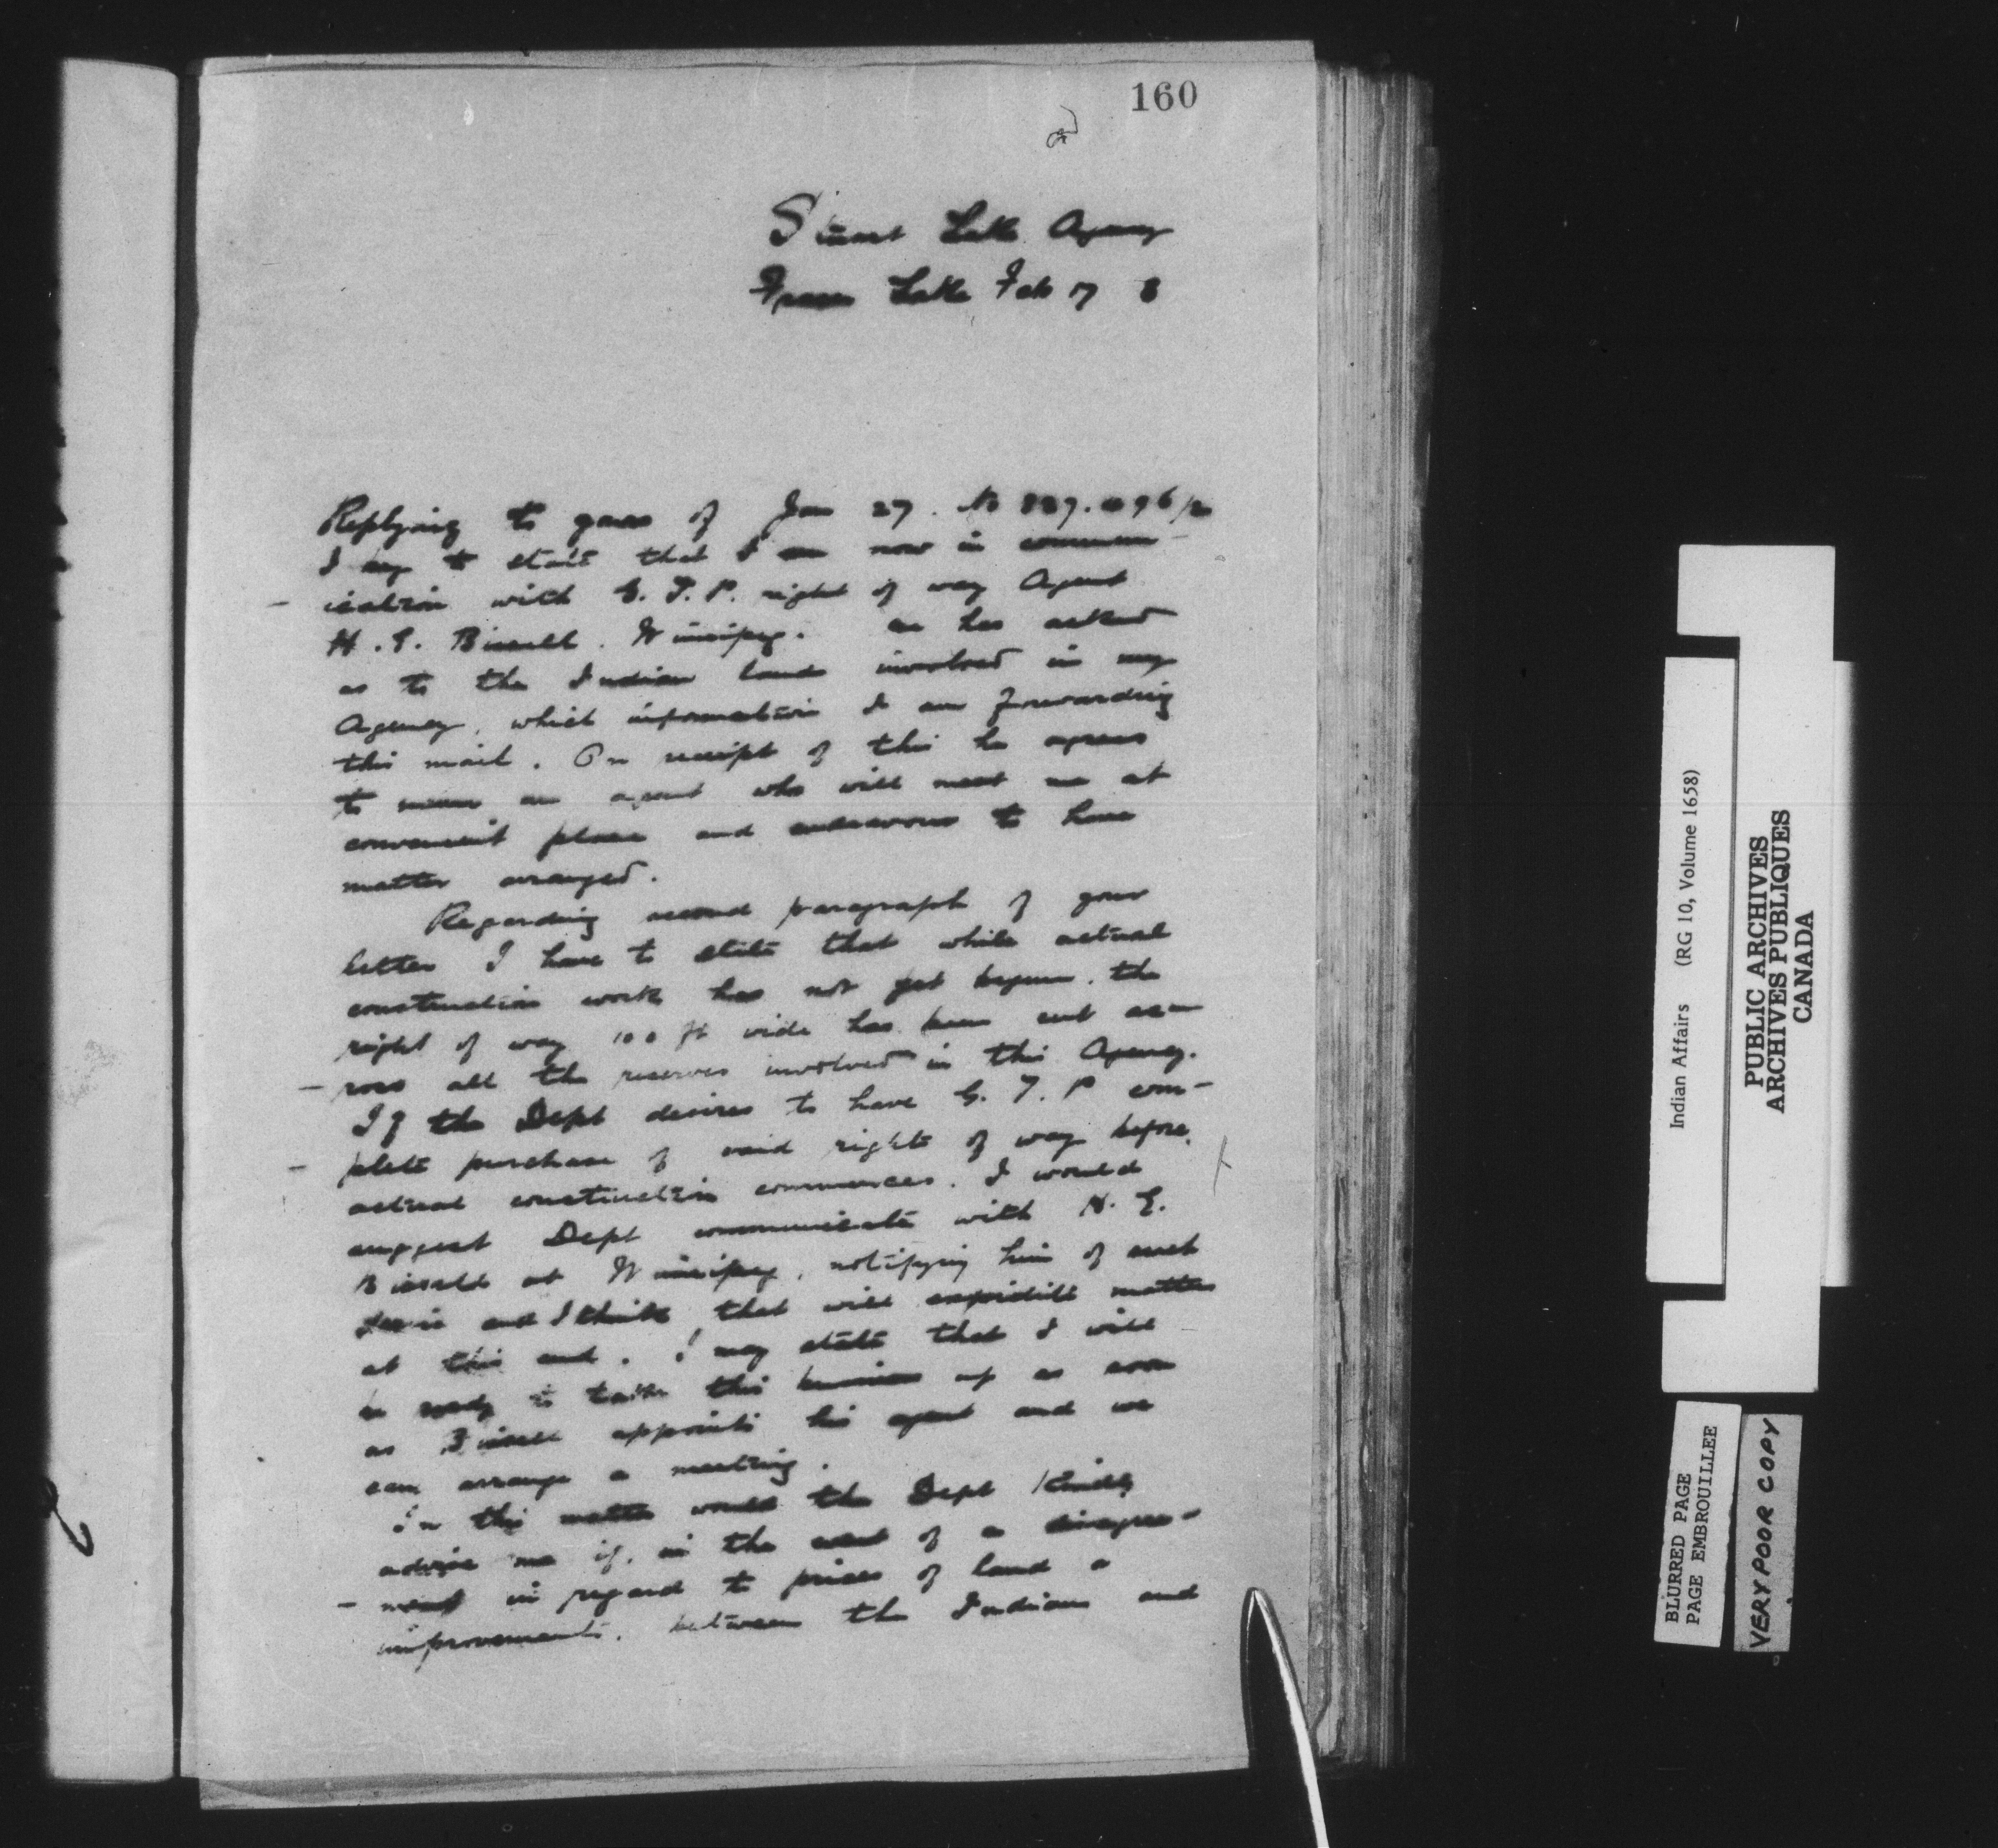 160
Stuart Lake Agency
Fraser Lake Feb 17
Replying to yours of Jan 27. No
I beg to state that I am now in commun-
ication with G. T. P. right of way Agent
H. E. Bissell. Winnipeg. he has asked
as to the Indian lands involved in my
Agency, which information I am forwarding
this mail. On receipt of this he agrees
to name an agent who will meet me at
convenient place and endeavour to have
matter arranged.
Regarding second paragraph of your
letter I have to state that while actual
construction work has not yet begun. the
right of way 100 ft wide has been cut ac-
ross all the reserves involved in this Agency.
If the Dept desires to have G. T. P com-
plete purchase of said right of way before
actual construction commences. I would
suggest Dept communicate with H. E.
Bissell at Winnipeg, notifying him of such
desire and I think that will expidite matters
at this end. I may state that I will
be ready to take this business up as soon
as Bissell appoints his agent and we
can arrange a meeting.
In this matter would the Dept kindly
advise me if, in the event of a disagree-
ment in regard to prices of land &
improvements. between the Indians and
Indian Affairs (RG 10, Volume 1658)
PUBLIC ARCHIVES
ARCHIVES PUBLIQUES
CANADA
BLURRED PAGE
PAGE EMBROUILLEE
VERY POOR COPY